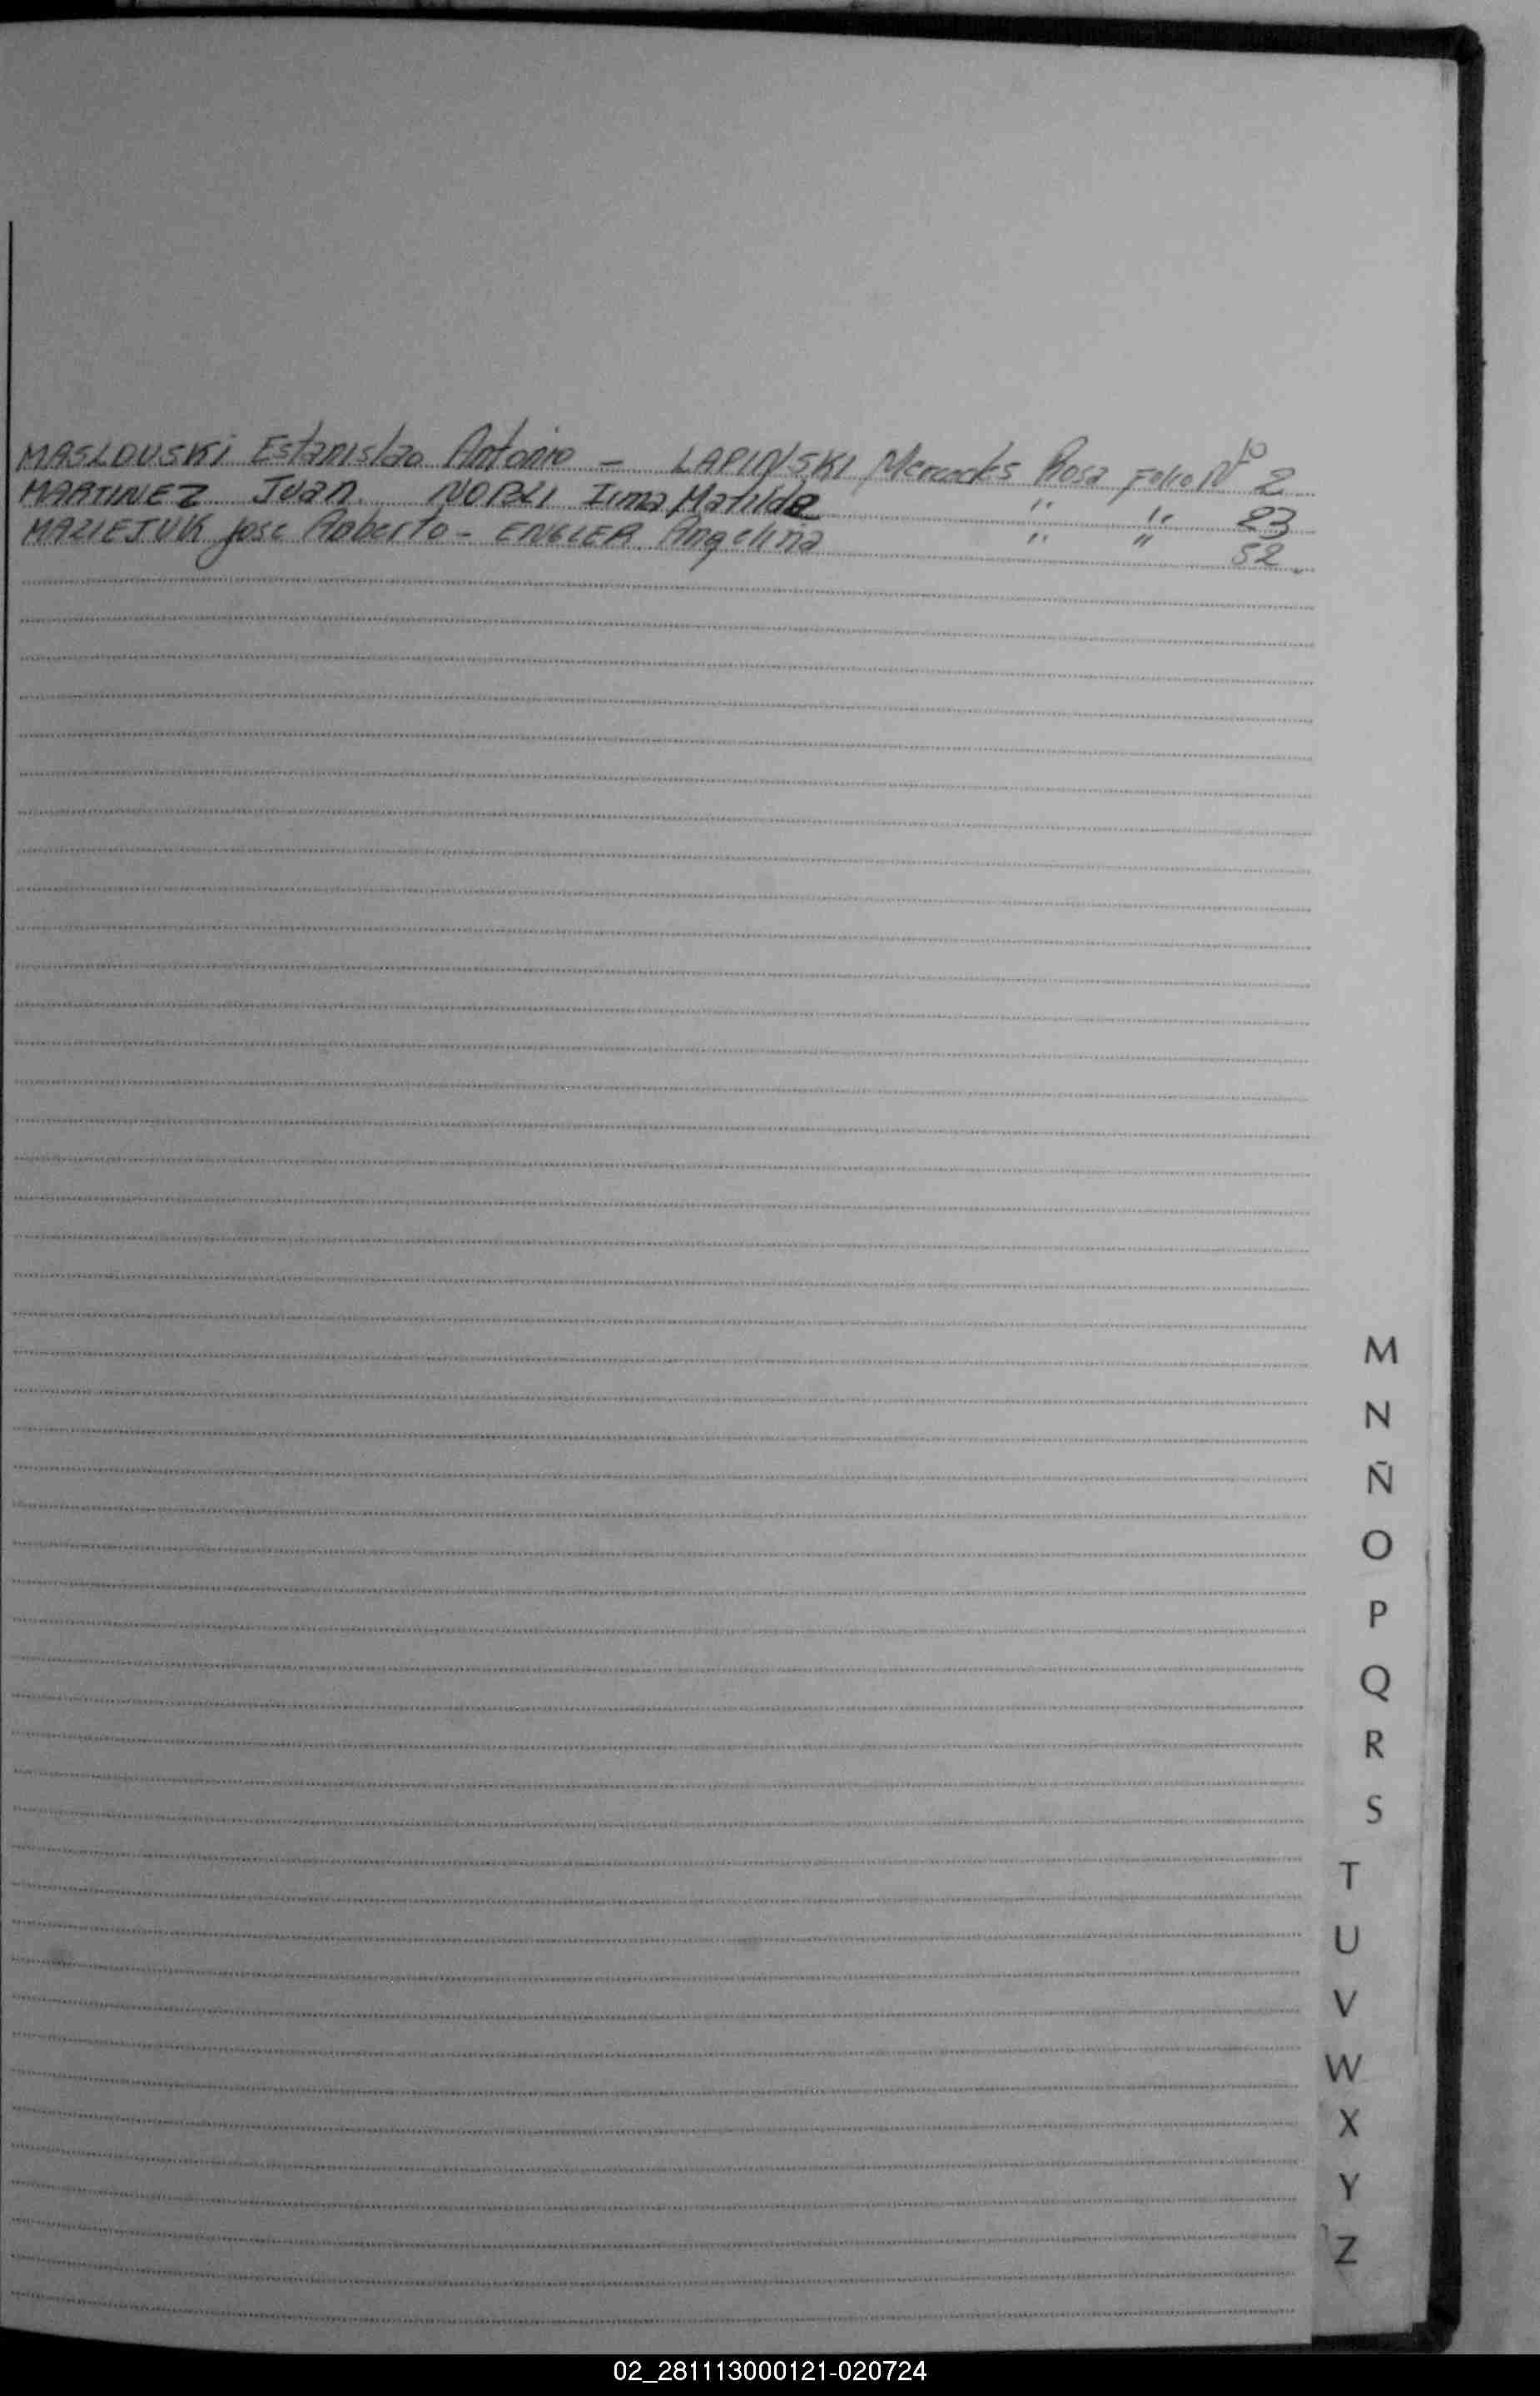 MASLOUSKi Estanislao Antonio - LAPINSKI Mercedes Rosa Folio Nº 2
MARTINEZ Juan NOBLI Irma Matilde " " 23
MAZIEJUK José Roberto - ENGLER Angelina " " 52.
M
N
Ñ
O
P
Q
R
S
T
U
V
W
X
Y
Z
02_281113000121-020724